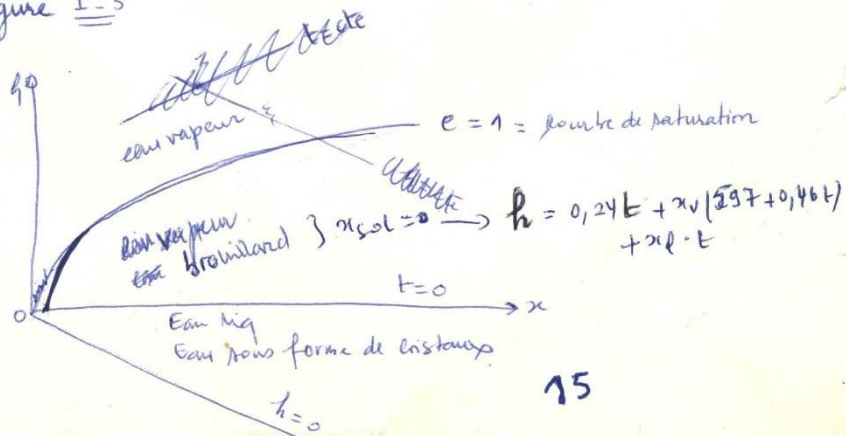 gure I-3
h
eau vapeur
e = 1 = courbe de saturation
eau vapeur
brouillard } x sol = 0 → h = 0,24t + xv (597 + 0,46t)
+ xl · t
t = 0
0
x
Eau liq
Eau sous forme de cristaux
h = 0
15